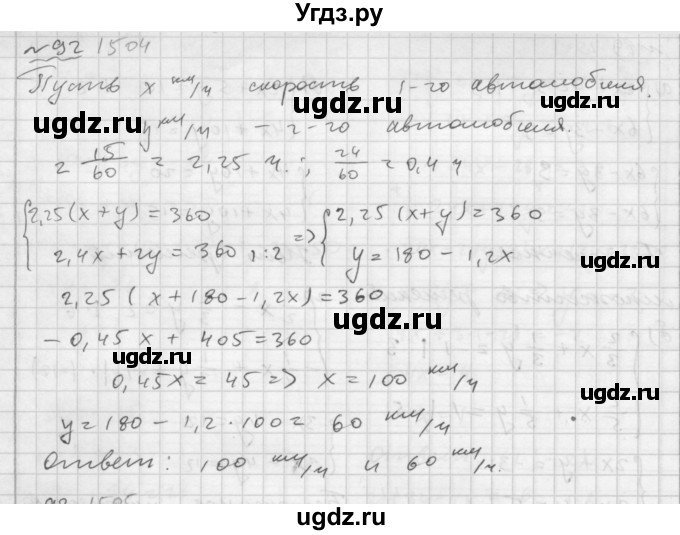 Угдз.ру
№92 1504
Пусть x км/ч скорость 1-го автомобиля.
ugdz.ru
ugdz.ru
y км/ч – 2-го автомобиля.
ugdz.ru
2 15/60 = 2,25 ч.; 24/60 = 0,4 ч
ugdz.ru
{2,25(x+y)=360 {2,25(x+y)=360
2,4x+2y=360 |:2 => y=180-1,2x
ugdz.ru
2,25(x+180-1,2x)=360
ugdz.ru
-0,45x+405=360
ugdz.ru
0,45x=45 => x=100 км/ч
ugdz.ru
y=180-1,2·100= 60 км/ч
Ответ: 100 км/ч и 60 км/ч.
ugdz.ru
ugdz.ru
ugdz.ru